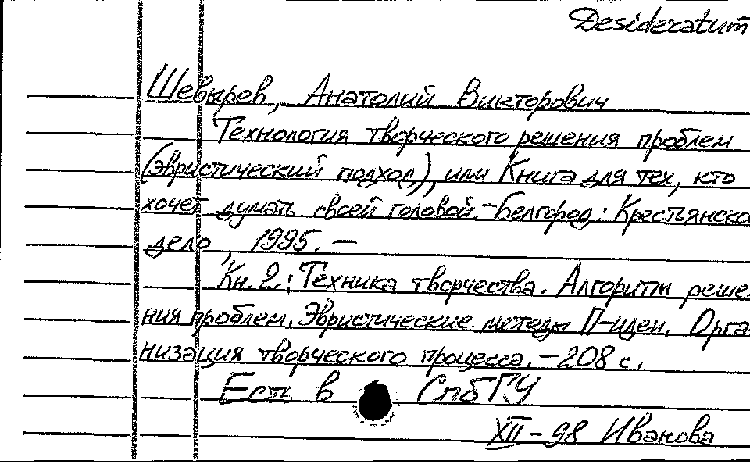 Desideratum
Шевырев, Анатолий Викторович
Технология творческого решения проблем
(эвристический подход), или Книга для тех, кто
хочет думать своей головой. - Белгород: Крестьянско
дело, 1995. —
Кн. 2.: Техника творчества. Алгоритм реше
ния проблем. Эвристические методы П-идеи. Орга
низация творческого процесса. - 208 с.
Есть в СпбГУ
XII - 98 Иванова